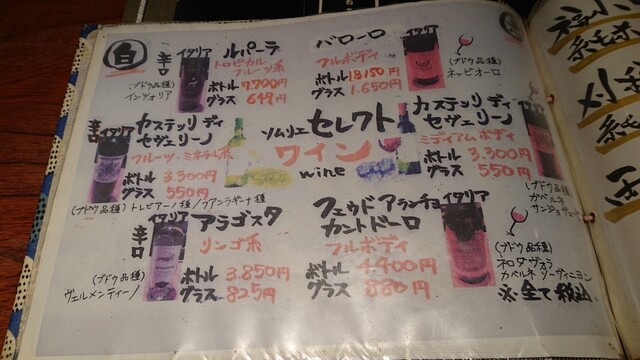 白
辛口
イタリア
ルパーラ
トロピカル
フルーツ系
ボトル 7.700円
グラス 649円
(ブドウ品種)
インツォリア
バローロ
フルボディ
ボトル 18150円
グラス 1.650円
(ブドウ品種)
ネッビオーロ
辛口
イタリア
カステッリ ディ
セヴェリーノ
フルーツ・ミネラル系
ボトル 3.300円
グラス 550円
(ブドウ品種) トレビアーノ種
ソムリエ セレクト
ワイン
wine
カステッリ ディ
セヴェリーノ
ミディアムボディ
ボトル 3.300円
グラス 550円
(ブドウ品種)
カベルネ
サンジョヴェーゼ
辛口
イタリア
アラゴスタ
リンゴ系
ボトル 3.850円
グラス 825円
(ブドウ品種)
ヴェルメンティーノ
フェウド アランチョ
カントドーロ
イタリア
フルボディ
ボトル 4.400円
グラス 880円
(ブドウ品種)
ネロダヴォラ
カベルネ ソーヴィニヨン
※全て税込